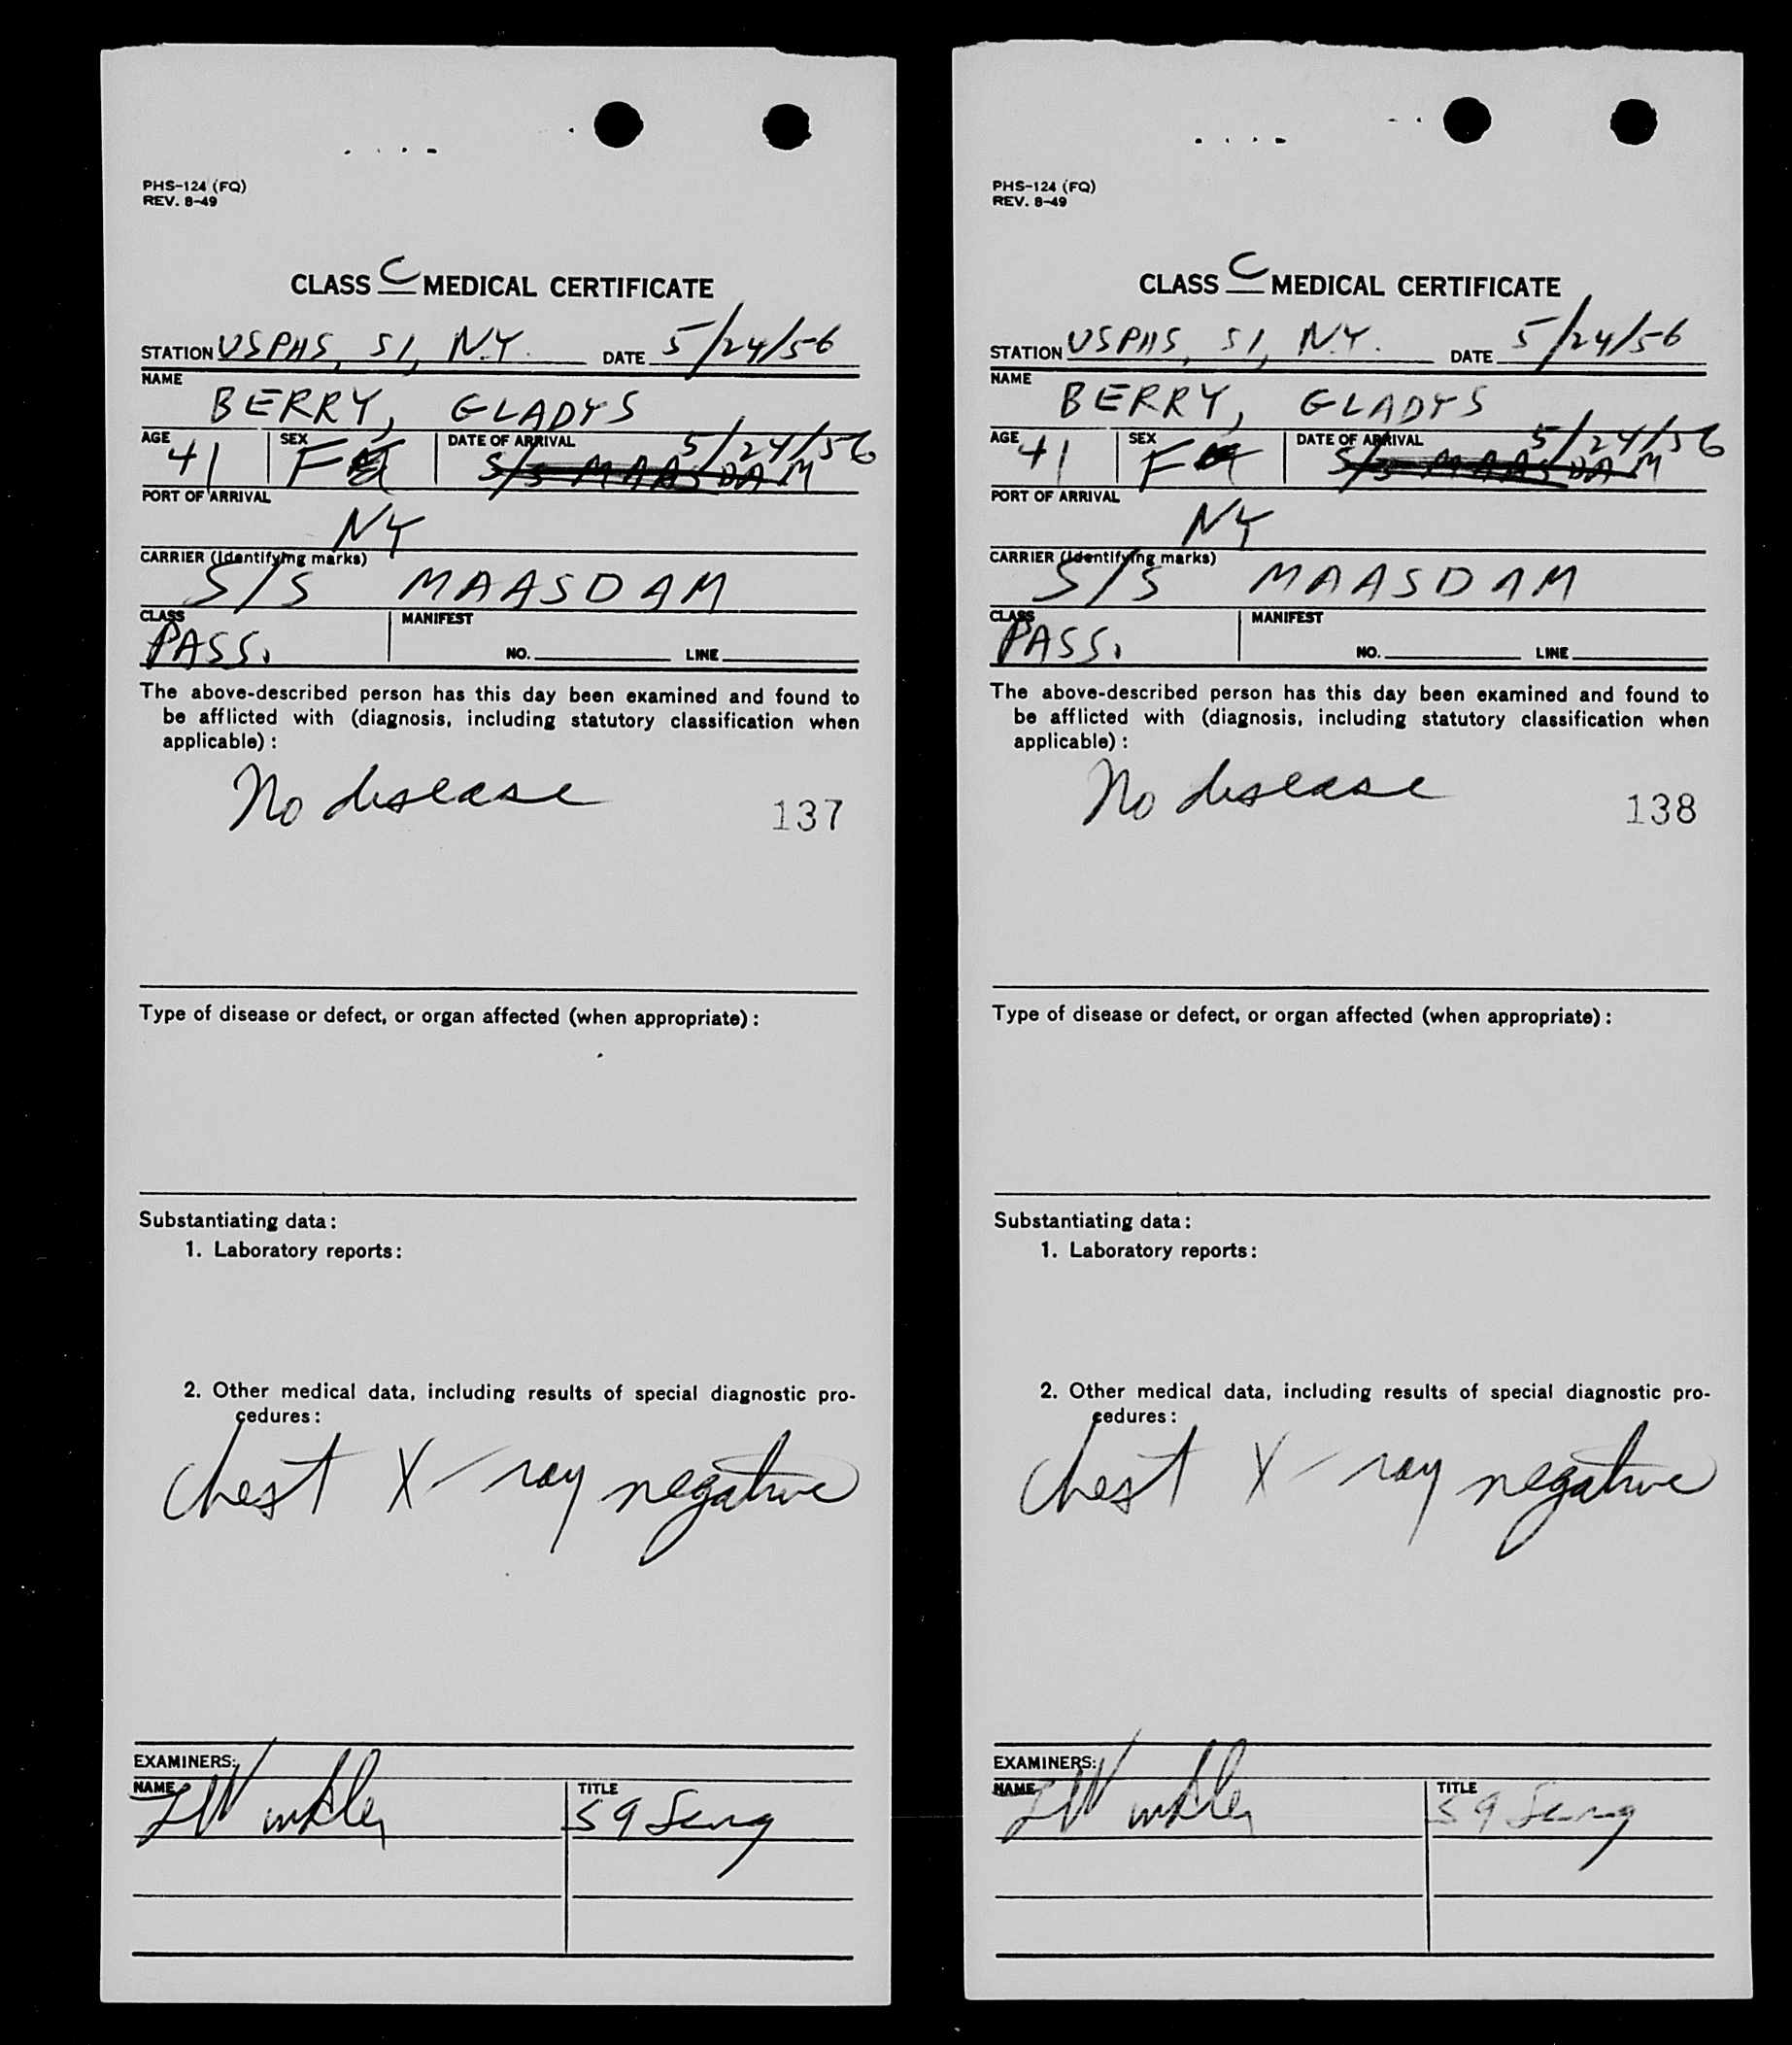 PHS-124 (FQ)
REV. 8-49
CLASS C MEDICAL CERTIFICATE
STATION USPHS, SI, N.Y. DATE 5/24/56
NAME
BERRY, GLADYS
AGE 41 SEX F DATE OF ARRIVAL 5/24/56
S/S MAASDAM
PORT OF ARRIVAL
NY
CARRIER (Identifying marks)
S/S MAASDAM
CLASS PASS. MANIFEST
NO. LINE
The above-described person has this day been examined and found to
be afflicted with (diagnosis, including statutory classification when
applicable):
No disease
137
Type of disease or defect, or organ affected (when appropriate):
Substantiating data:
1. Laboratory reports:
2. Other medical data, including results of special diagnostic pro-
cedures:
chest X-ray negative
EXAMINERS:
NAME TITLE
PHS-124 (FQ)
REV. 8-49
CLASS C MEDICAL CERTIFICATE
STATION USPHS, SI, N.Y. DATE 5/24/56
NAME
BERRY, GLADYS
AGE 41 SEX F DATE OF ARRIVAL 5/24/56
S/S MAASDAM
PORT OF ARRIVAL
NY
CARRIER (Identifying marks)
S/S MAASDAM
CLASS PASS. MANIFEST
NO. LINE
The above-described person has this day been examined and found to
be afflicted with (diagnosis, including statutory classification when
applicable):
No disease
138
Type of disease or defect, or organ affected (when appropriate):
Substantiating data:
1. Laboratory reports:
2. Other medical data, including results of special diagnostic pro-
cedures:
chest X-ray negative
EXAMINERS:
NAME TITLE